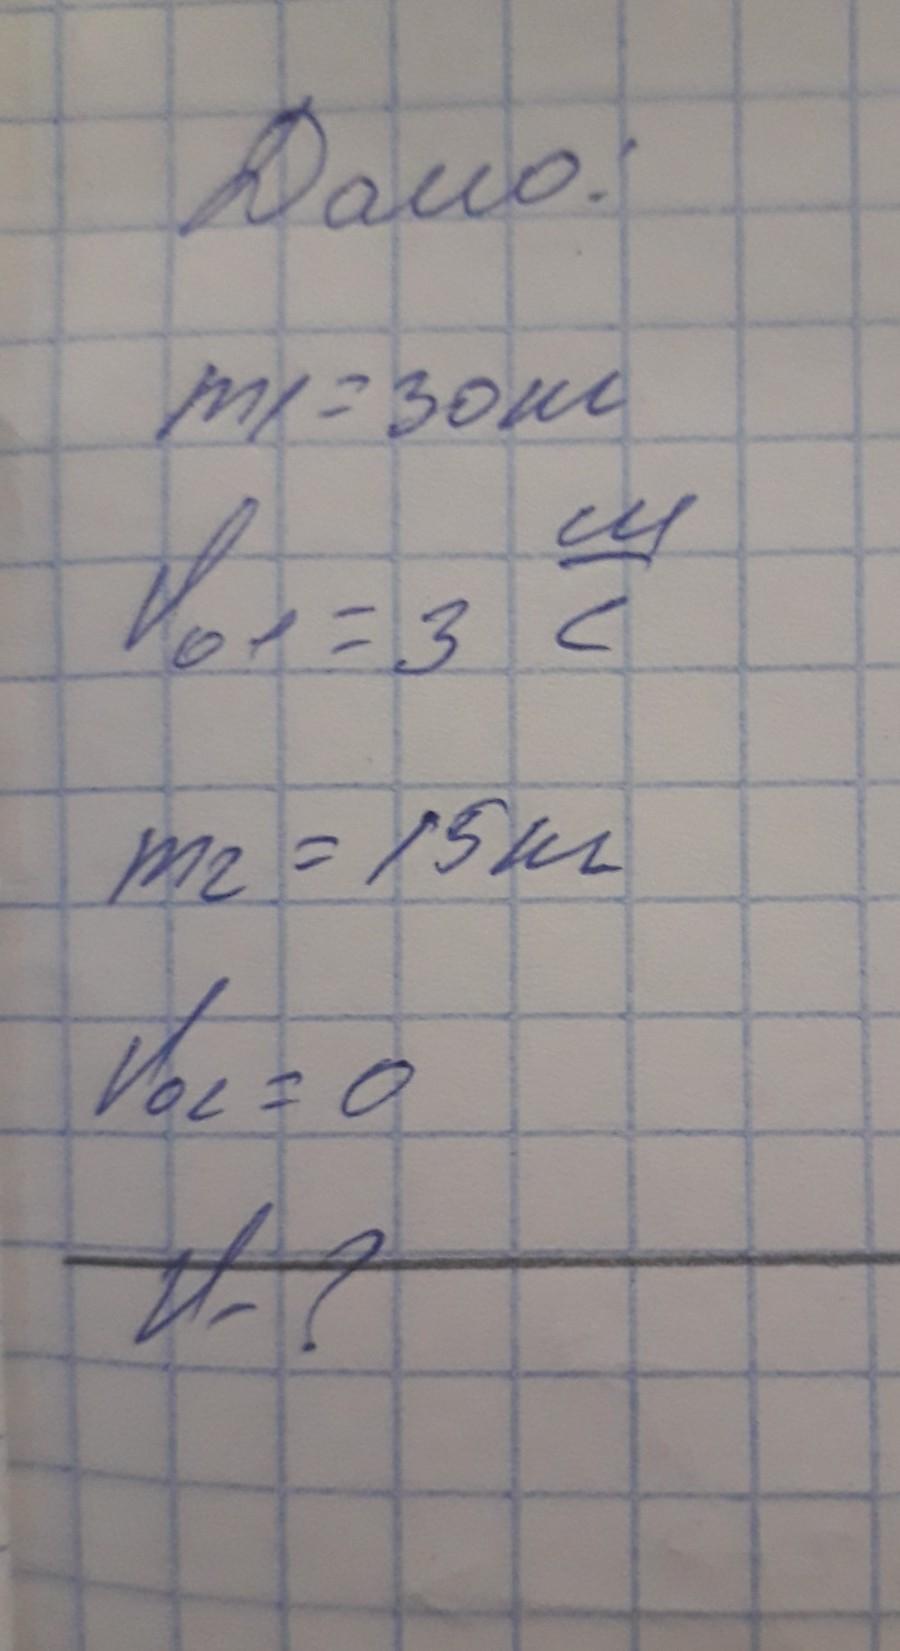 Дано:
m1 = 30 кг
V01 = 3 м/с
m2 = 15 кг
V02 = 0
V - ?